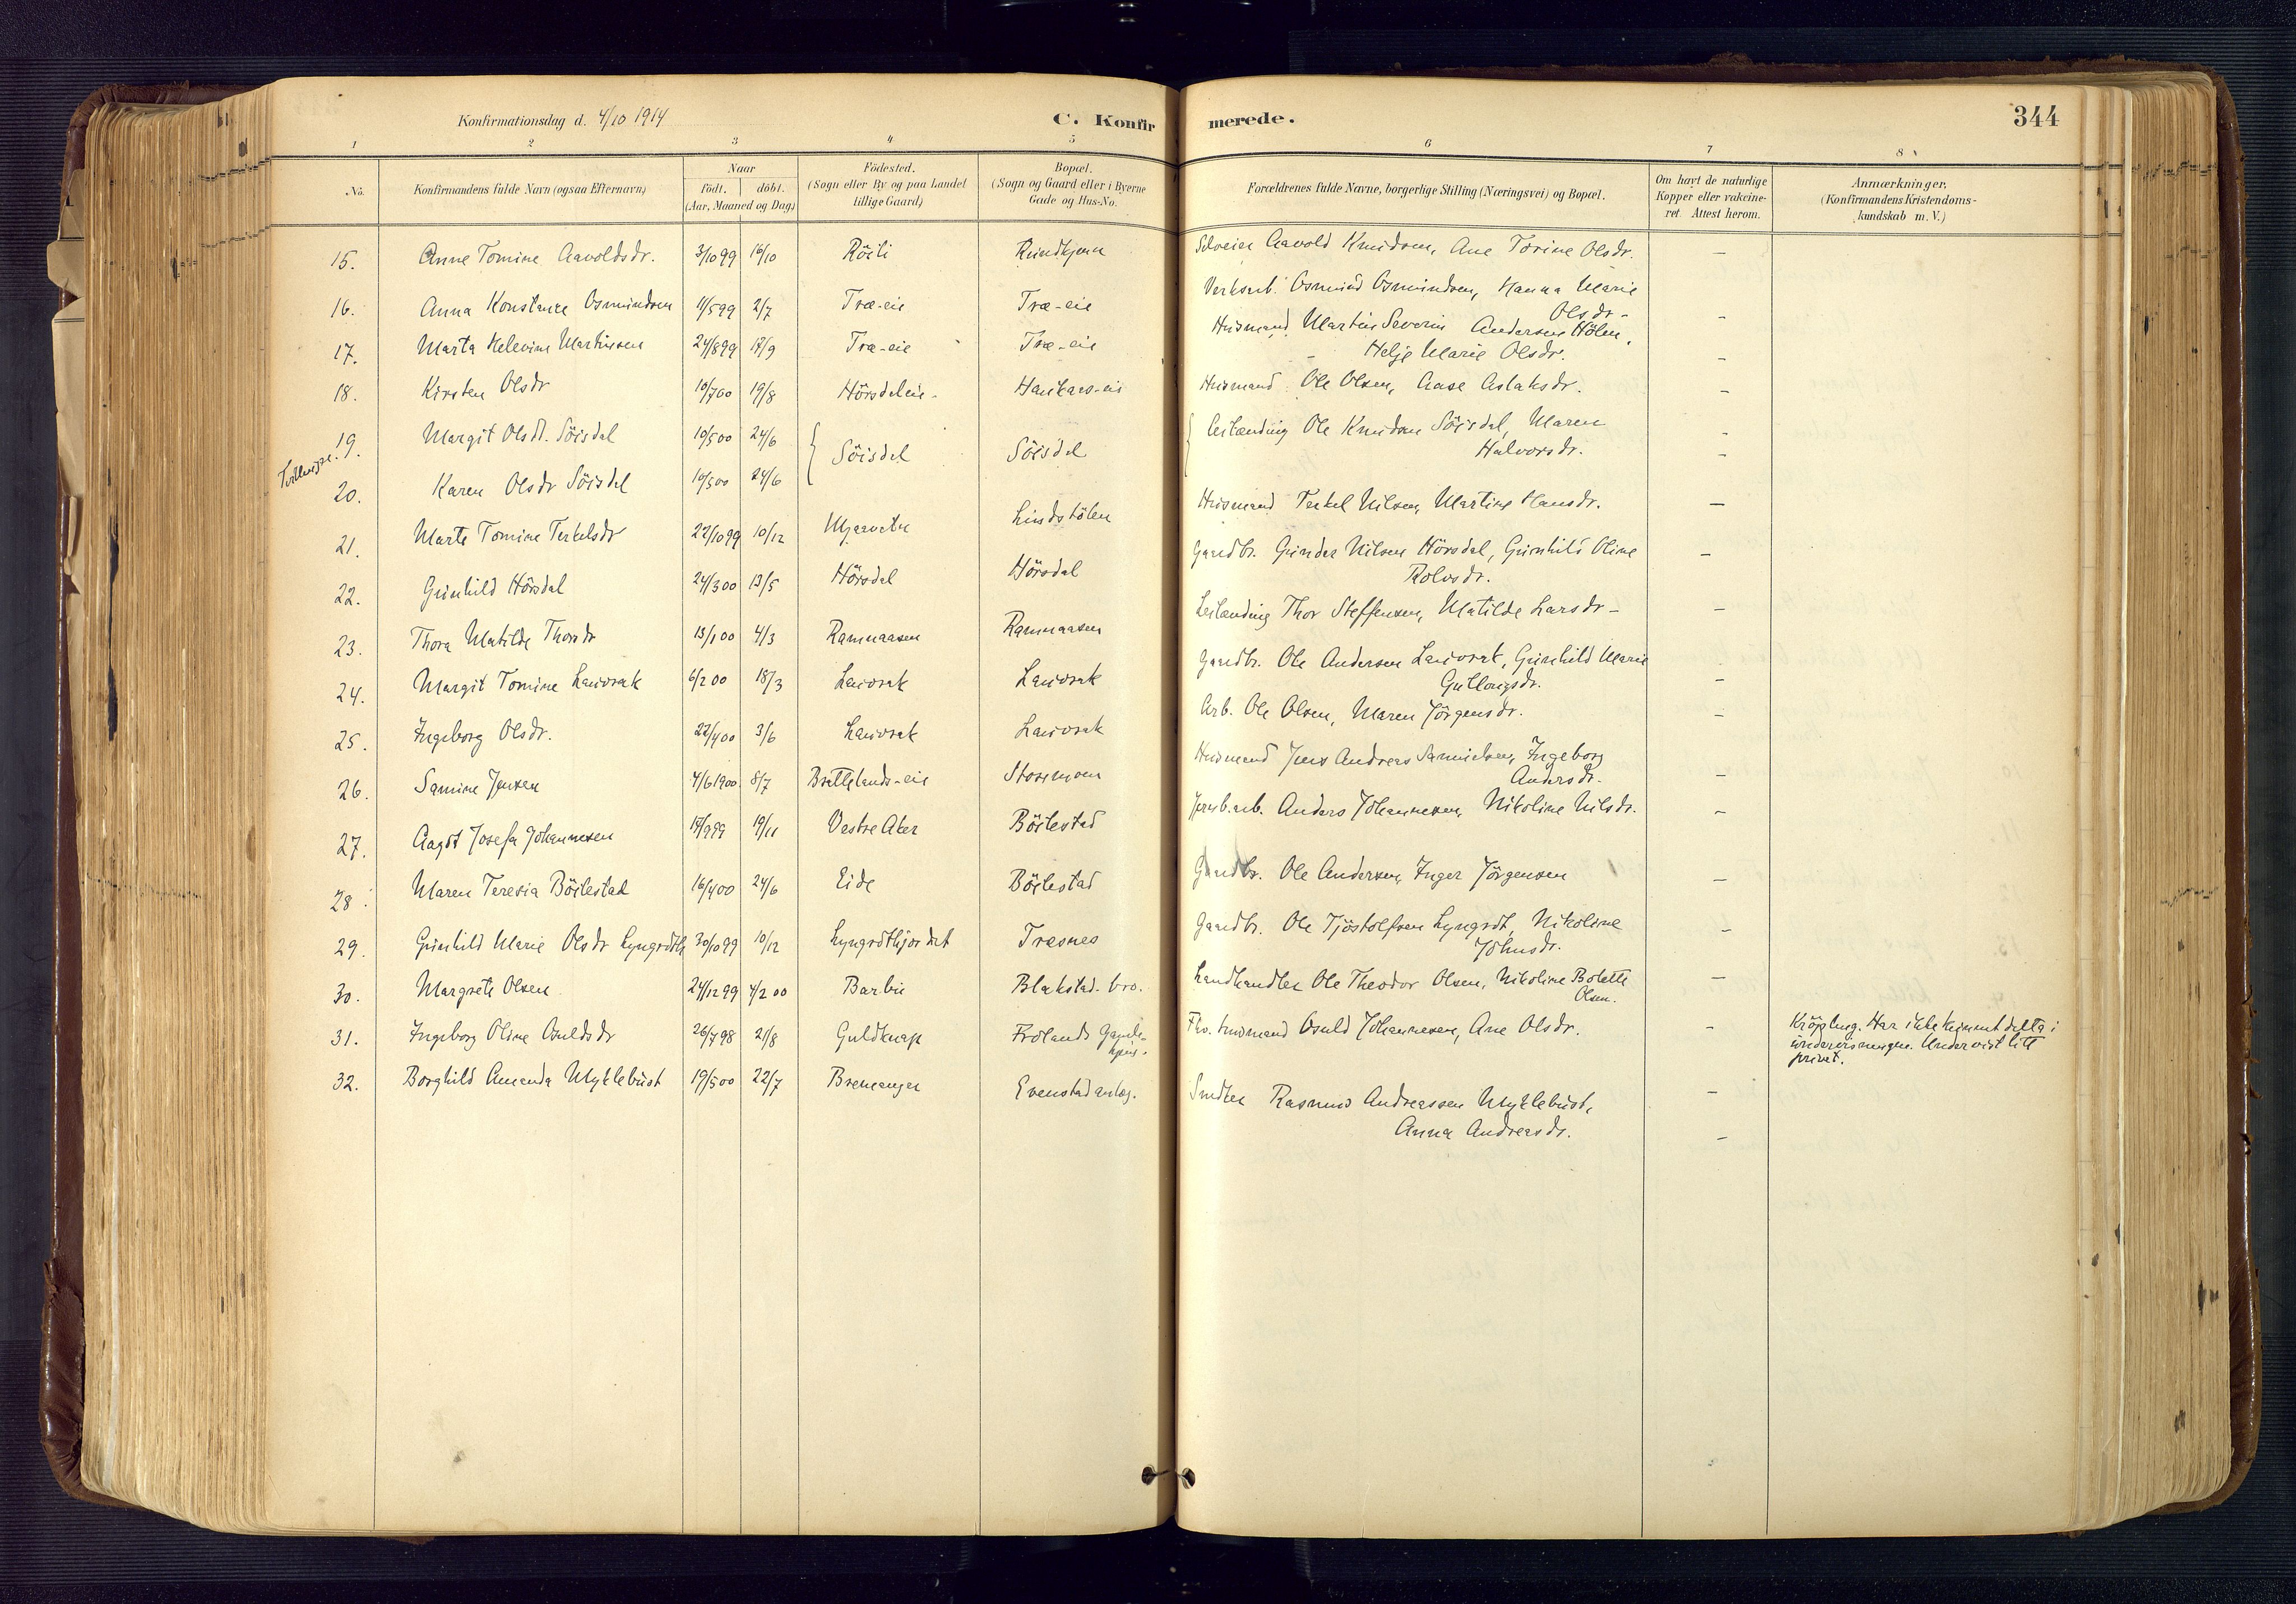 Konfirmationsdag d. 4/10 1914
C. Konfirmerede.
344
1 2 3 4 5 6 7 8
No.
Konfirmandens fulde Navn (ogsaa Efternavn)
Naar
födt. döbt.
(Aar, Maaned og Dag)
Födested.
(Sogn eller By og paa Landet
tillige Gaard)
Bopæl.
(Sogn og Gaard eller i Byerne
Gade og Hus-No.
Forældrenes fulde Navne, borgerlige Stilling (Næringsvei) og Bopæl.
Om havt de naturlige
Kopper eller vakcine-
ret. Attest herom.
Anmærkninger.
(Konfirmandens Kristendoms-
kundskab m. V.)
15. Anne Tomine Aavoldsdr. 3/10 99 16/10 Röili Rundkjern Selveier Aavold Knudsen, Ane Torine Olsdr. –
16. Anna Konstance Osmundsen 11/5 99 2/7 Træ-eie Træ-eie Verksarb. Osmund Osmundsen, Hanna Marie
Olsdr – –
17. Marta Helevine Martinsen 24/8 99 17/9 Træ-eie Træ-eie Husmand Martin Severin Andersen Hölen,
Helje Marie Olsdr. –
18. Kirsten Olsdr 10/7 00 19/8 Hörsdaleie - Haukaas-eie Husmand Ole Olsen, Aase Aslaksdr. –
19. Margit Olsdr. Söisdal 10/5 00 24/6 Söisdal Söisdal Leilænding Ole Knudsen Söisdal, Maren –
Halvorsdr. –
Tvillinger.
20. Karen Olsdr Söisdal 10/5 00 24/6
21. Marte Tomine Terkelsdr 22/10 99 10/12 Mjaavatn Lindstölen Husmand Terkel Nilsen, Martine Hansdr. –
22. Gunhild Hörsdal 24/3 00 13/5 Hörsdal Hörsdal Gaardbr. Gunder Nilsen Hörsdal, Gunhild Oline –
Rolvsdr.
23. Thora Matilde Thorsdr 13/1 00 4/3 Ramnaasen Ramnaasen Leilænding Thor Steffensen, Matilde Larsdr – –
24. Margit Tomine Lauvrak 6/2 00 18/3 Lauvrak Lauvrak Gaardbr. Ole Andersen Lauvrak, Gunhild Marie
Gutlougsdr. –
25. Ingeborg Olsdr. 22/4 00 3/6 Lauvrak Lauvrak Arb. Ole Olsen, Maren Jörgensdr. –
26. Samine Jensen 4/6 1900 8/7 Brattelands-eie Storemoen Husmand Jens Andreas Samuelsen, Ingeborg
Andersdr. –
27. Aagot Josefa Johannesen 17/9 99 19/11 Vestre Aker Böilestad Jernb.arb. Anders Johannesen, Nikoline Nilsdr. –
28. Maren Teresia Böilestad 16/4 00 24/6 Eide Böilestad Gaardbr. Ole Andersen, Inger Jörgensen –
29. Gunhild Marie Olsdr Lyngrdth 30/10 99 10/12 Lyngrothjordet Tresnes Gaardbr. Ole Tjöstolfsen Lyngrot, Nikoline –
Johnsdr.
30. Margrete Olsen 24/12 99 4/2 00 Barbu Blakstad-bro. Landhandler Ole Theodor Olsen, Nikoline Bolette –
Olsen.
31. Ingeborg Oline Osuldsdr 26/7 98 21/8 Guldknap Frolands Gamle-
hjem. Fhv. husmand Osuld Johannesen, Ane Olsdr. – Kröpling. Har ikke kunnet delta i
undervisningen. Undervist litt
privat.
32. Borghild Amanda Myklebust 19/5 00 22/7 Bremanger Evenstad anlæg. Smelter Rasmus Andreassen Myklebust, –
Anna Andreasdr. –